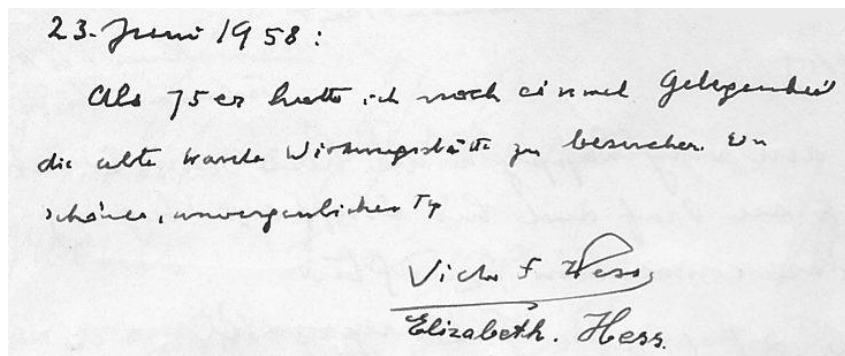 23. Juni 1958:
Als 75er hatte ich noch einmal Gelegenheit
die alte Wirkungsstätte zu besuchen. Ein
schöner, unvergesslicher Tg
Victor F Hess
Elizabeth. Hess.